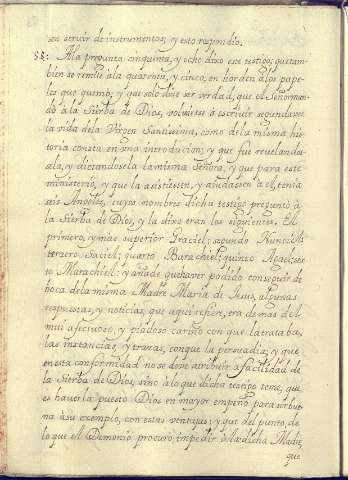 sen servir de instrumentos; y esto respondio.
58: A la pregunta cinquenta, y ocho dixo este testigo, que tam
bien se remite à la quarenta, y cinco, en horden à los pape
les que quemò, y que solo dice ser verdad, que el Señor man
dò à la Sierba de Dios, volviesse à escrivir segunda vez
la vida de la Virgen Santissima, como de la misma his
toria consta en una introducion; y que fuè revelando
sela, y dictandosela la misma Señora, y que para este
ministerio, y que la asistiessen, y ayudassen à el, tenia
seis Angeles, cuyos nombres dicha testigo preguntò à
la Sierba de Dios, y la dixo eran los siguientes. El
primero, y mas superior Graciel; segundo
tercero Saciel; quarto Barachiel; quinto
to Marachiel: y añade que haver podido conseguir de
boca de la misma Madre Maria de Jesus, algunas
respuestas, y noticias, que aqui refiere, era demas del
mui afectuoso, y piadoso cariño con que la trataba,
las instancias, y trazas, con que la persuadia; y que
en esta conformidad no se deve atribuir à facilidad de
la Sierba de Dios, sino à lo que dicha testigo teme, que
es haverla puesto Dios en mayor empeño, para ser bue
na à su exemplo, con estas ventajas; y que del punto, de
lo que el Demonio procurò impedir à la dicha Madre,
que